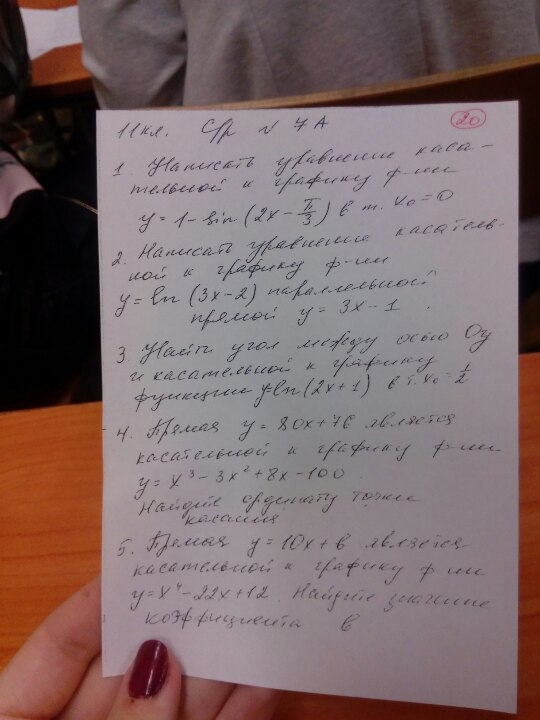 11 кл. С/р № 7 А 20
1. Написать уравнение каса-
тельной к графику ф-ии
y = 1 - sin (2x - π/3) в т. x₀ = 0
2. Написать уравнение касатель-
ной к графику ф-ии
y = ln (3x-2) параллельной
прямой y = 3x - 1.
3. Найти угол между осью Oy
и касательной к графику
функции y=ln(2x+1) в т. x₀ = 1/2
4. Прямая y = 80x+76 является
касательной к графику ф-ии
y = x³ - 3x² + 8x - 100.
Найдите ординату точки
касания
5. Прямая y = 10x + b является
касательной к графику ф-ии
y = x⁴ - 22x + 12. Найдите значение
коэффициента b